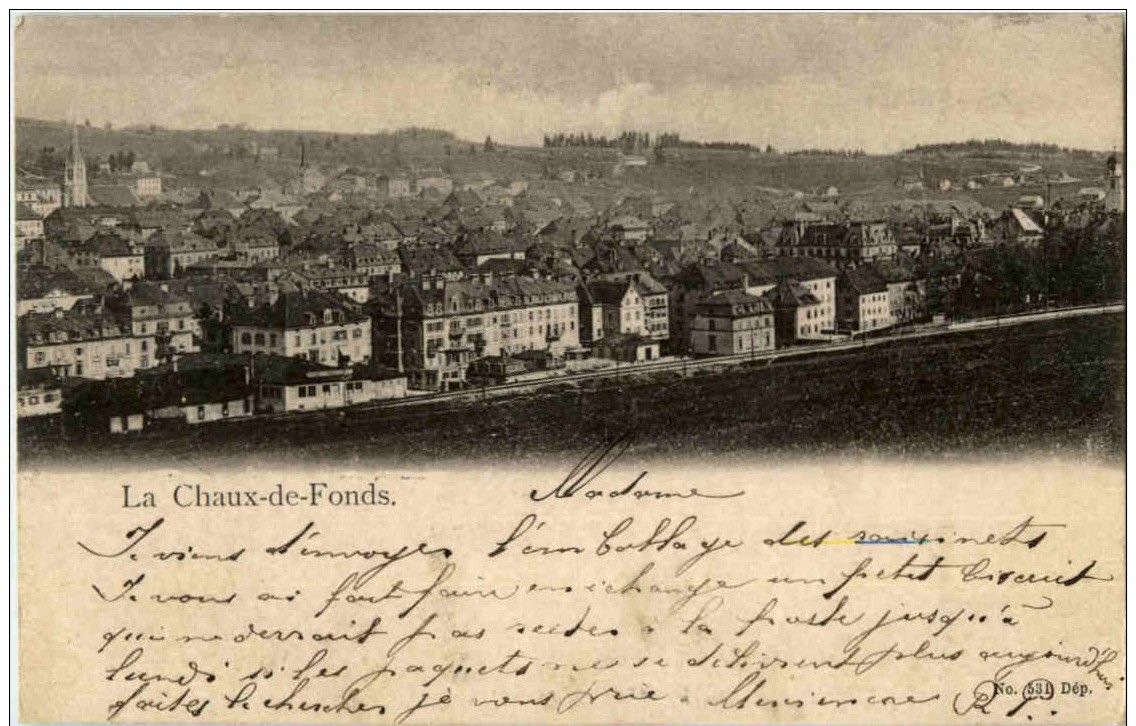 La Chaux-de-Fonds.
Madame
Je viens d'envoyer l'emballage des raisinets
Je vous ai fait faire en échange un petit biscuit
qui ne devrait pas rester à la poste jusqu'à
lundi si les paquets ne se délivrent plus aujourd'hui
faites le chercher je vous prie
No. 531 Dép.